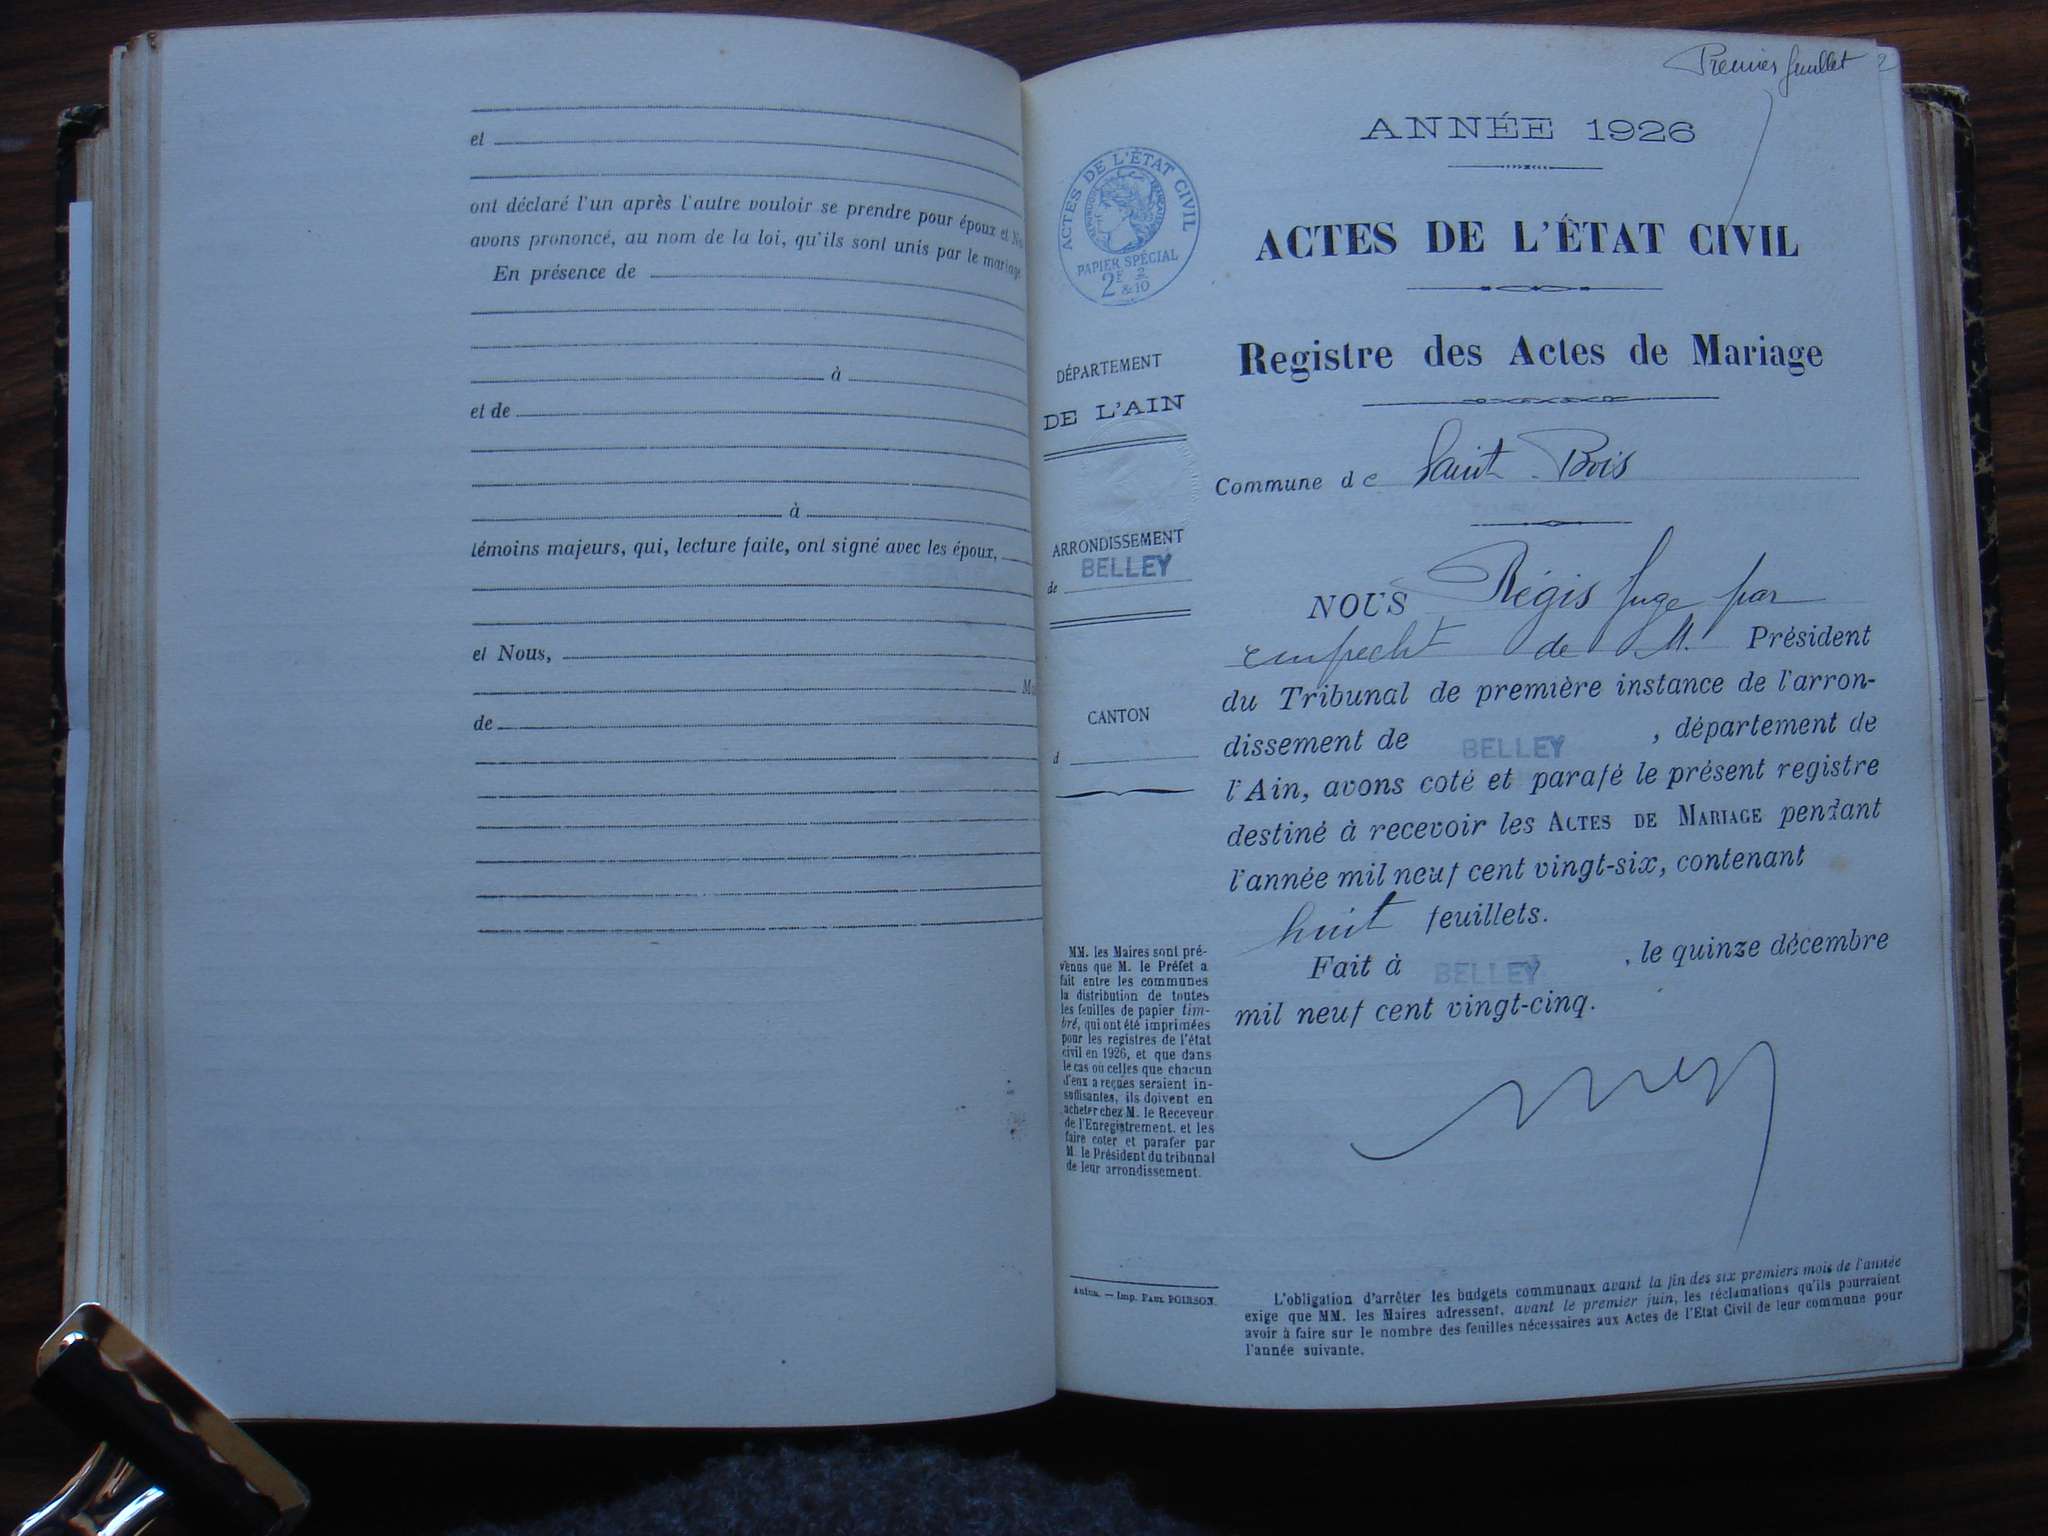 et
ont déclaré l'un après l'autre vouloir se prendre pour époux et No
avons prononcé, au nom de la loi, qu'ils sont unis par le mariage
En présence de
à
et de
à
témoins majeurs, qui, lecture faite, ont signé avec les époux,
et Nous,
Ma
de
Premier feuillet 2
ANNÉE 1926
ACTES DE L'ÉTAT CIVIL
RÉPUBLIQUE FRANÇAISE
PAPIER SPÉCIAL
2F & 2/10
ACTES DE L'ÉTAT CIVIL
Registre des Actes de Mariage
DÉPARTEMENT
DE L'AIN
ARRONDISSEMENT
de BELLEY
CANTON
d
MM. les Maires sont pré-
venus que M. le Préfet a
fait entre les communes
la distribution de toutes
les feuilles de papier tim-
bré, qui ont été imprimées
pour les registres de l'état
civil en 1926, et que dans
le cas où celles que chacun
d'eux a reçues seraient in-
suffisantes, ils doivent en
acheter chez M. le Receveur
de l'Enregistrement, et les
faire coter et parafer par
M. le Président du tribunal
de leur arrondissement.
Imp. PAUL POIRSON.
Commune de Saint Bois
NOUS Régis Juge par
empecht de M. Président
du Tribunal de première instance de l'arron-
dissement de BELLEY, département de
l'Ain, avons coté et parafé le présent registre
destiné à recevoir les ACTES DE MARIAGE pendant
l'année mil neuf cent vingt-six, contenant
huit feuillets.
Fait à BELLEY, le quinze décembre
mil neuf cent vingt-cinq.
L'obligation d'arrêter les budgets communaux avant la fin des six premiers mois de l'année
exige que MM. les Maires adressent, avant le premier juin, les réclamations qu'ils pourraient
avoir à faire sur le nombre des feuilles nécessaires aux Actes de l'Etat Civil de leur commune pour
l'année suivante.